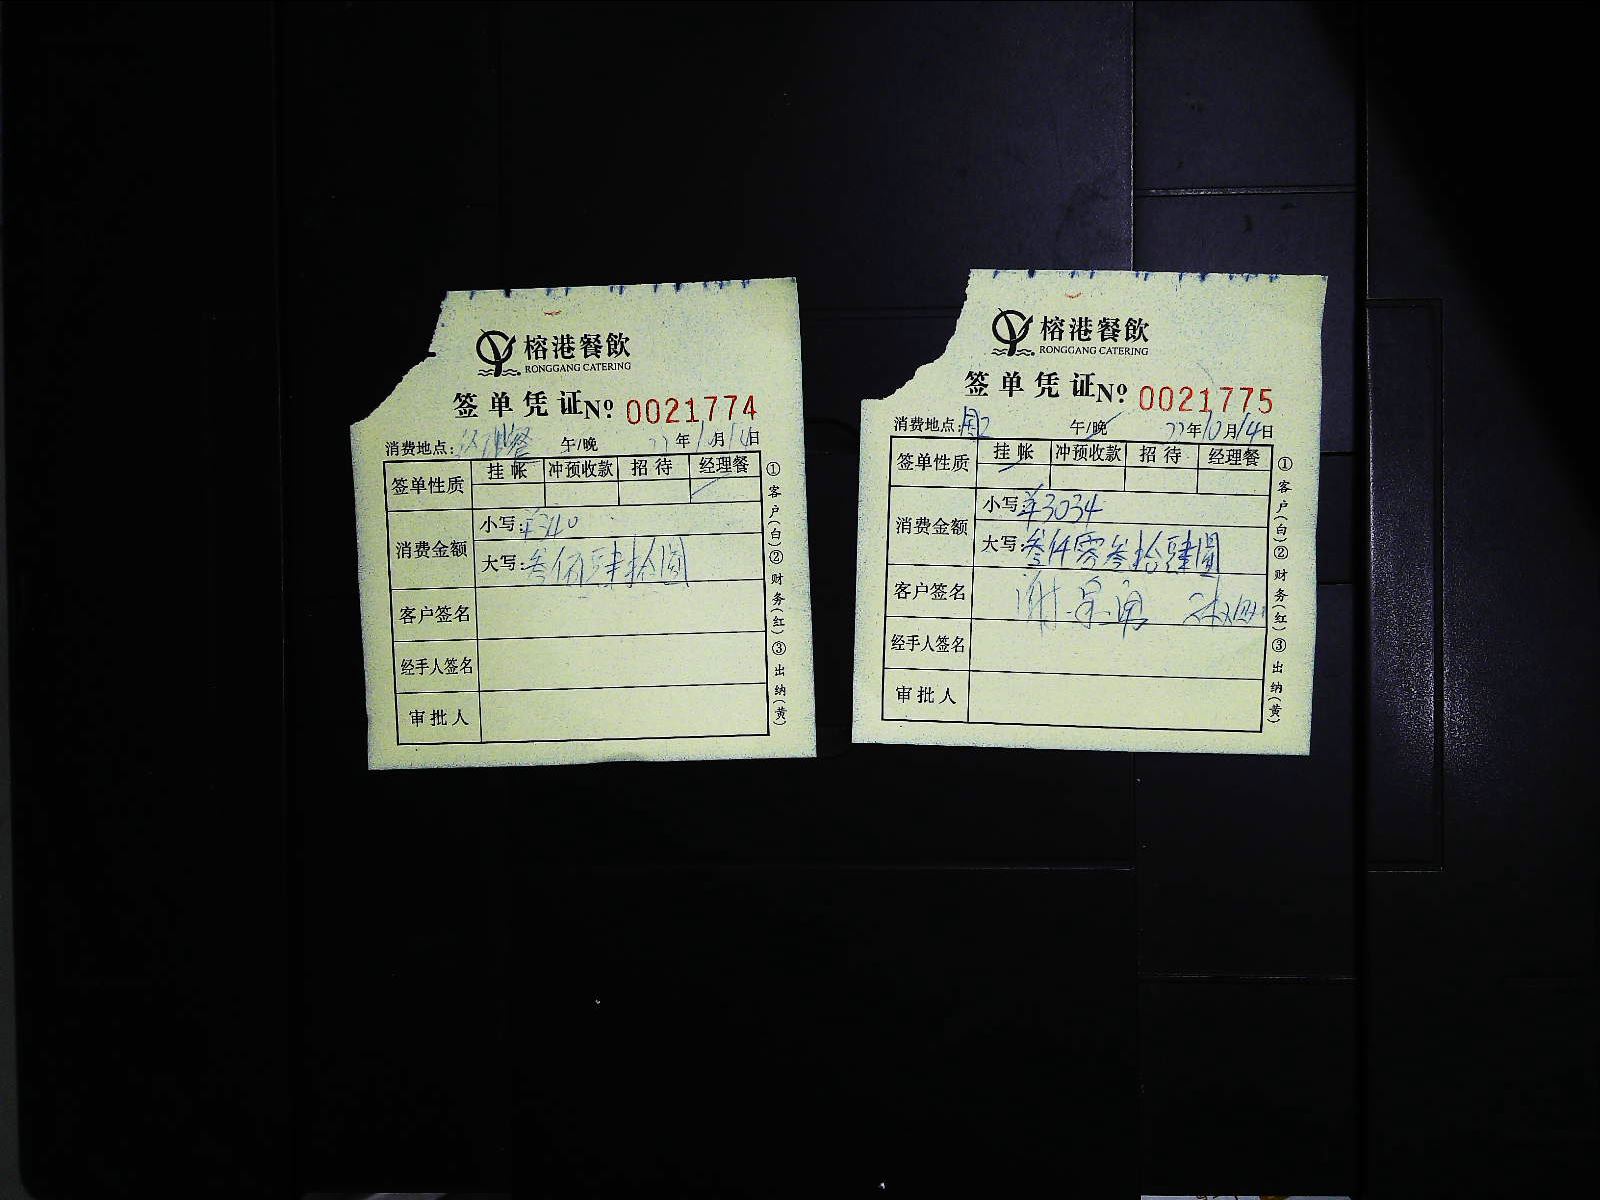 榕港餐飲
RONGGANG CATERING
签单凭证 Nº 0021774
消费地点: 餐 午/晚 22年10月14日
签单性质 挂帐 冲预收款 招待 经理餐
消费金额
小写:¥340
大写:叁佰肆拾圆
客户签名
经手人签名
审批人
①客户(白)②财务(红)③出纳(黄)
榕港餐飲
RONGGANG CATERING
签单凭证 Nº 0021775
消费地点:周2 午/晚 22年10月14日
签单性质 挂帐 冲预收款 招待 经理餐
消费金额
小写:¥3034
大写:叁仟零叁拾肆圆
客户签名 谢
经手人签名
审批人
①客户(白)②财务(红)③出纳(黄)